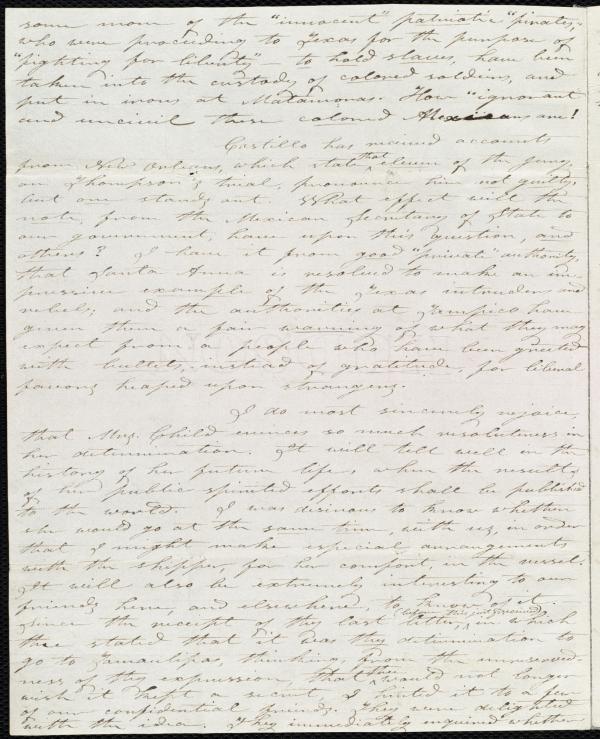 some more of the "innocent" patriotic "pirates,"
who were proceeding to Texas for the purpose of
"fighting for liberty" — to hold slaves, have been
taken into the custody of colored soldiers, and
put in irons at Matamoras. How "ignorant
and uncivil these colored Mexicans are!
Costillo has received accounts
from New Orleans, which state that eleven of the jury,
on Thompson's trial, pronounce him not guilty,
but one stands out. What effect will the
note, from the Mexican Secretary of State to
our government, have upon this question, and
others? I have it from good "private" authority,
that Santa Anna is resolved to make an im-
pressive example of the Texas intruders and
rebels; and the authorities at Tampico have
given them a fair warning of what they may
expect from a people who have been greeted
with bullets, instead of gratitude, for liberal
favors heaped upon strangers.
I do most sincerely rejoice,
that Mrs. Child evinces so much resoluteness in
her determination. It will tell well in the
history of her future life, when the results
of her public spirited efforts shall be published
to the world. I was desirous to know whether
she would go at the same time, with us, in order
that I might make especial arrangements
with the skipper, for her comfort, in the vessel.
It will also be extremely interesting to our
friends here, and elsewhere, to know of it.
Since the receipt of thy last letter, in which
thee stated that it was thy determination to
go to Tamaulipas, thinking, from the unreserved-
ness of thy expression, that thee would not longer
wish it kept a secret, I hinted it to a few
of our confidential friends. They were delighted
with the idea. They immediately enquired whether